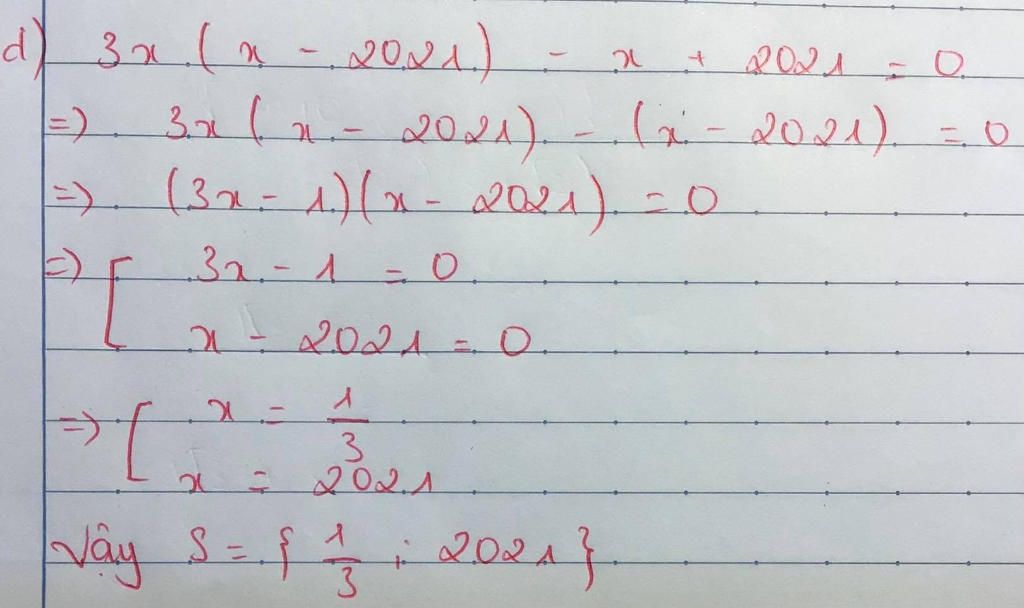 d) 3x (x - 2021) - x + 2021 = 0
=> 3x (x - 2021) - (x - 2021) = 0
=> (3x - 1)(x - 2021) = 0
=> [ 3x - 1 = 0
x - 2021 = 0
=> [ x = 1/3
x = 2021
Vậy S = { 1/3 ; 2021 }